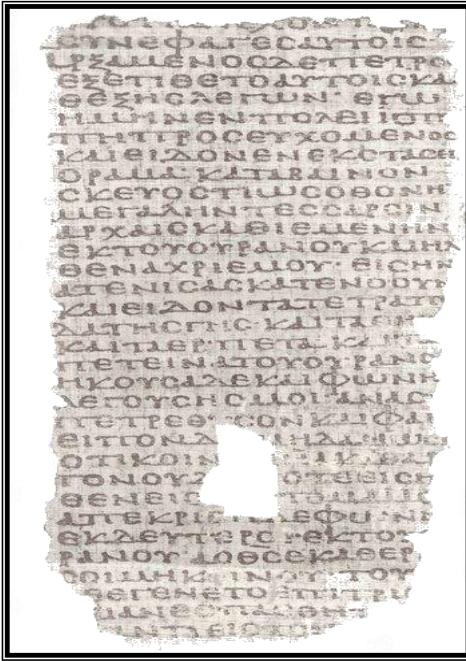 CYNEΦΑΓΕCΑΥΤΟΙC
ΑΡΞΑΜΕΝΟCΔΕΠΕΤΡΟ
ΕΞΕΤΙΘΕΤΟΑΥΤΟΙCΚΑ
ΘΕΞΗCΛΕΓΩΝ ΕΓΩ
ΗΜΗΝΕΝΠΟΛΕΙΙΟΠ
ΠΗΠΡΟCΕΥΧΟΜΕΝΟC
ΚΑΙΕΙΔΟΝΕΝΕΚCΤΑCΕΙ
ΟΡΑΜΑΚΑΤΑΒΑΙΝΟΝ
CΚΕΥΟCΤΙΩCΟΘΟΝΗ
ΜΕΓΑΛΗΝΤΕCCΑΡCΙΝ
ΑΡΧΑΙCΚΑΘΙΕΜΕΝΗΝ
ΕΚΤΟΥΟΥΡΑΝΟΥΚΑΙΗΛ
ΘΕΝΑΧΡΙΕΜΟΥ ΕΙCΗΝ
ΑΤΕΝΙCΑCΚΑΤΕΝΟΟΥ
ΚΑΙΕΙΔΟΝΤΑΤΕΤΡΑΠΟ
ΔΑΤΗCΓΗCΚΑΙΤΑ
ΚΑΙΤΑΕΡΠΕΤΑΚΑΙ
ΠΕΤΕΙΝΑΤΟΥΟΥΡΑΝΟ
ΗΚΟΥCΑΔΕΚΑΙΦΩΝΗ
ΛΕΓΟΥCΗCΜΟΙΑΝΑC
ΠΕΤΡΕΘΥCΟΝΚΑΙΦΑ
ΕΙΠΟΝΔ ΜΗΔΑΜΩ
ΟΤΙΚΟΙΝ ΑΚΑΘΑΡ
ΤΟΝΟΥΔ ΟΤΕΕΙCΗ
ΘΕΝΕΙC
ΑΠΕΚΡΙ ΔΕΦΩΝΗ
ΕΚΔΕΥΤΕΡΟ ΕΚΤΟΥ
ΡΑΝΟΥ ΑΟΘCΕΚΑΘΕΡ
CΟΙΜΗΚΟΙΝΟΥ ΤΟΥ
ΕΓΕΝΕΤΟΕΠΙΤΡ